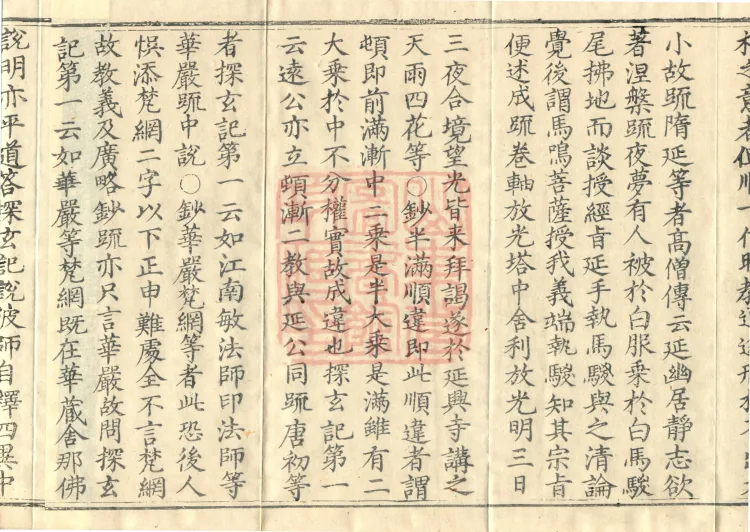 小故䟽隋延等者高僧傳云延幽居靜志欲
著涅槃䟽夜夢有人被於白服乘於白馬駿
尾拂地而談授經㫖延手執馬駿與之清論
覺後謂馬鳴菩薩授我義端執駿知其宗㫖
便述成䟽卷軸放光塔中舍利放光明三日
三夜合境望光皆来拜謁遂於延興寺講之
天雨四花等○鈔半滿順違即此順違者謂
頓即前滿漸中二乘是半大乘是滿雖有二
大乘於中不分權實故成違也探玄記第一
云遠公亦立頓漸二教與延公同䟽唐初等
者探玄記第一云如江南敏法師印法師等
華嚴䟽中說○鈔華嚴梵網等者此恐後人
悮添梵網二字以下正申難處全不言梵網
故教義及廣略鈔䟽亦只言華嚴故問探玄
記第一云如華嚴等梵網既在華蔵舍那佛
說明亦平道答探玄記說彼師自釋四異中